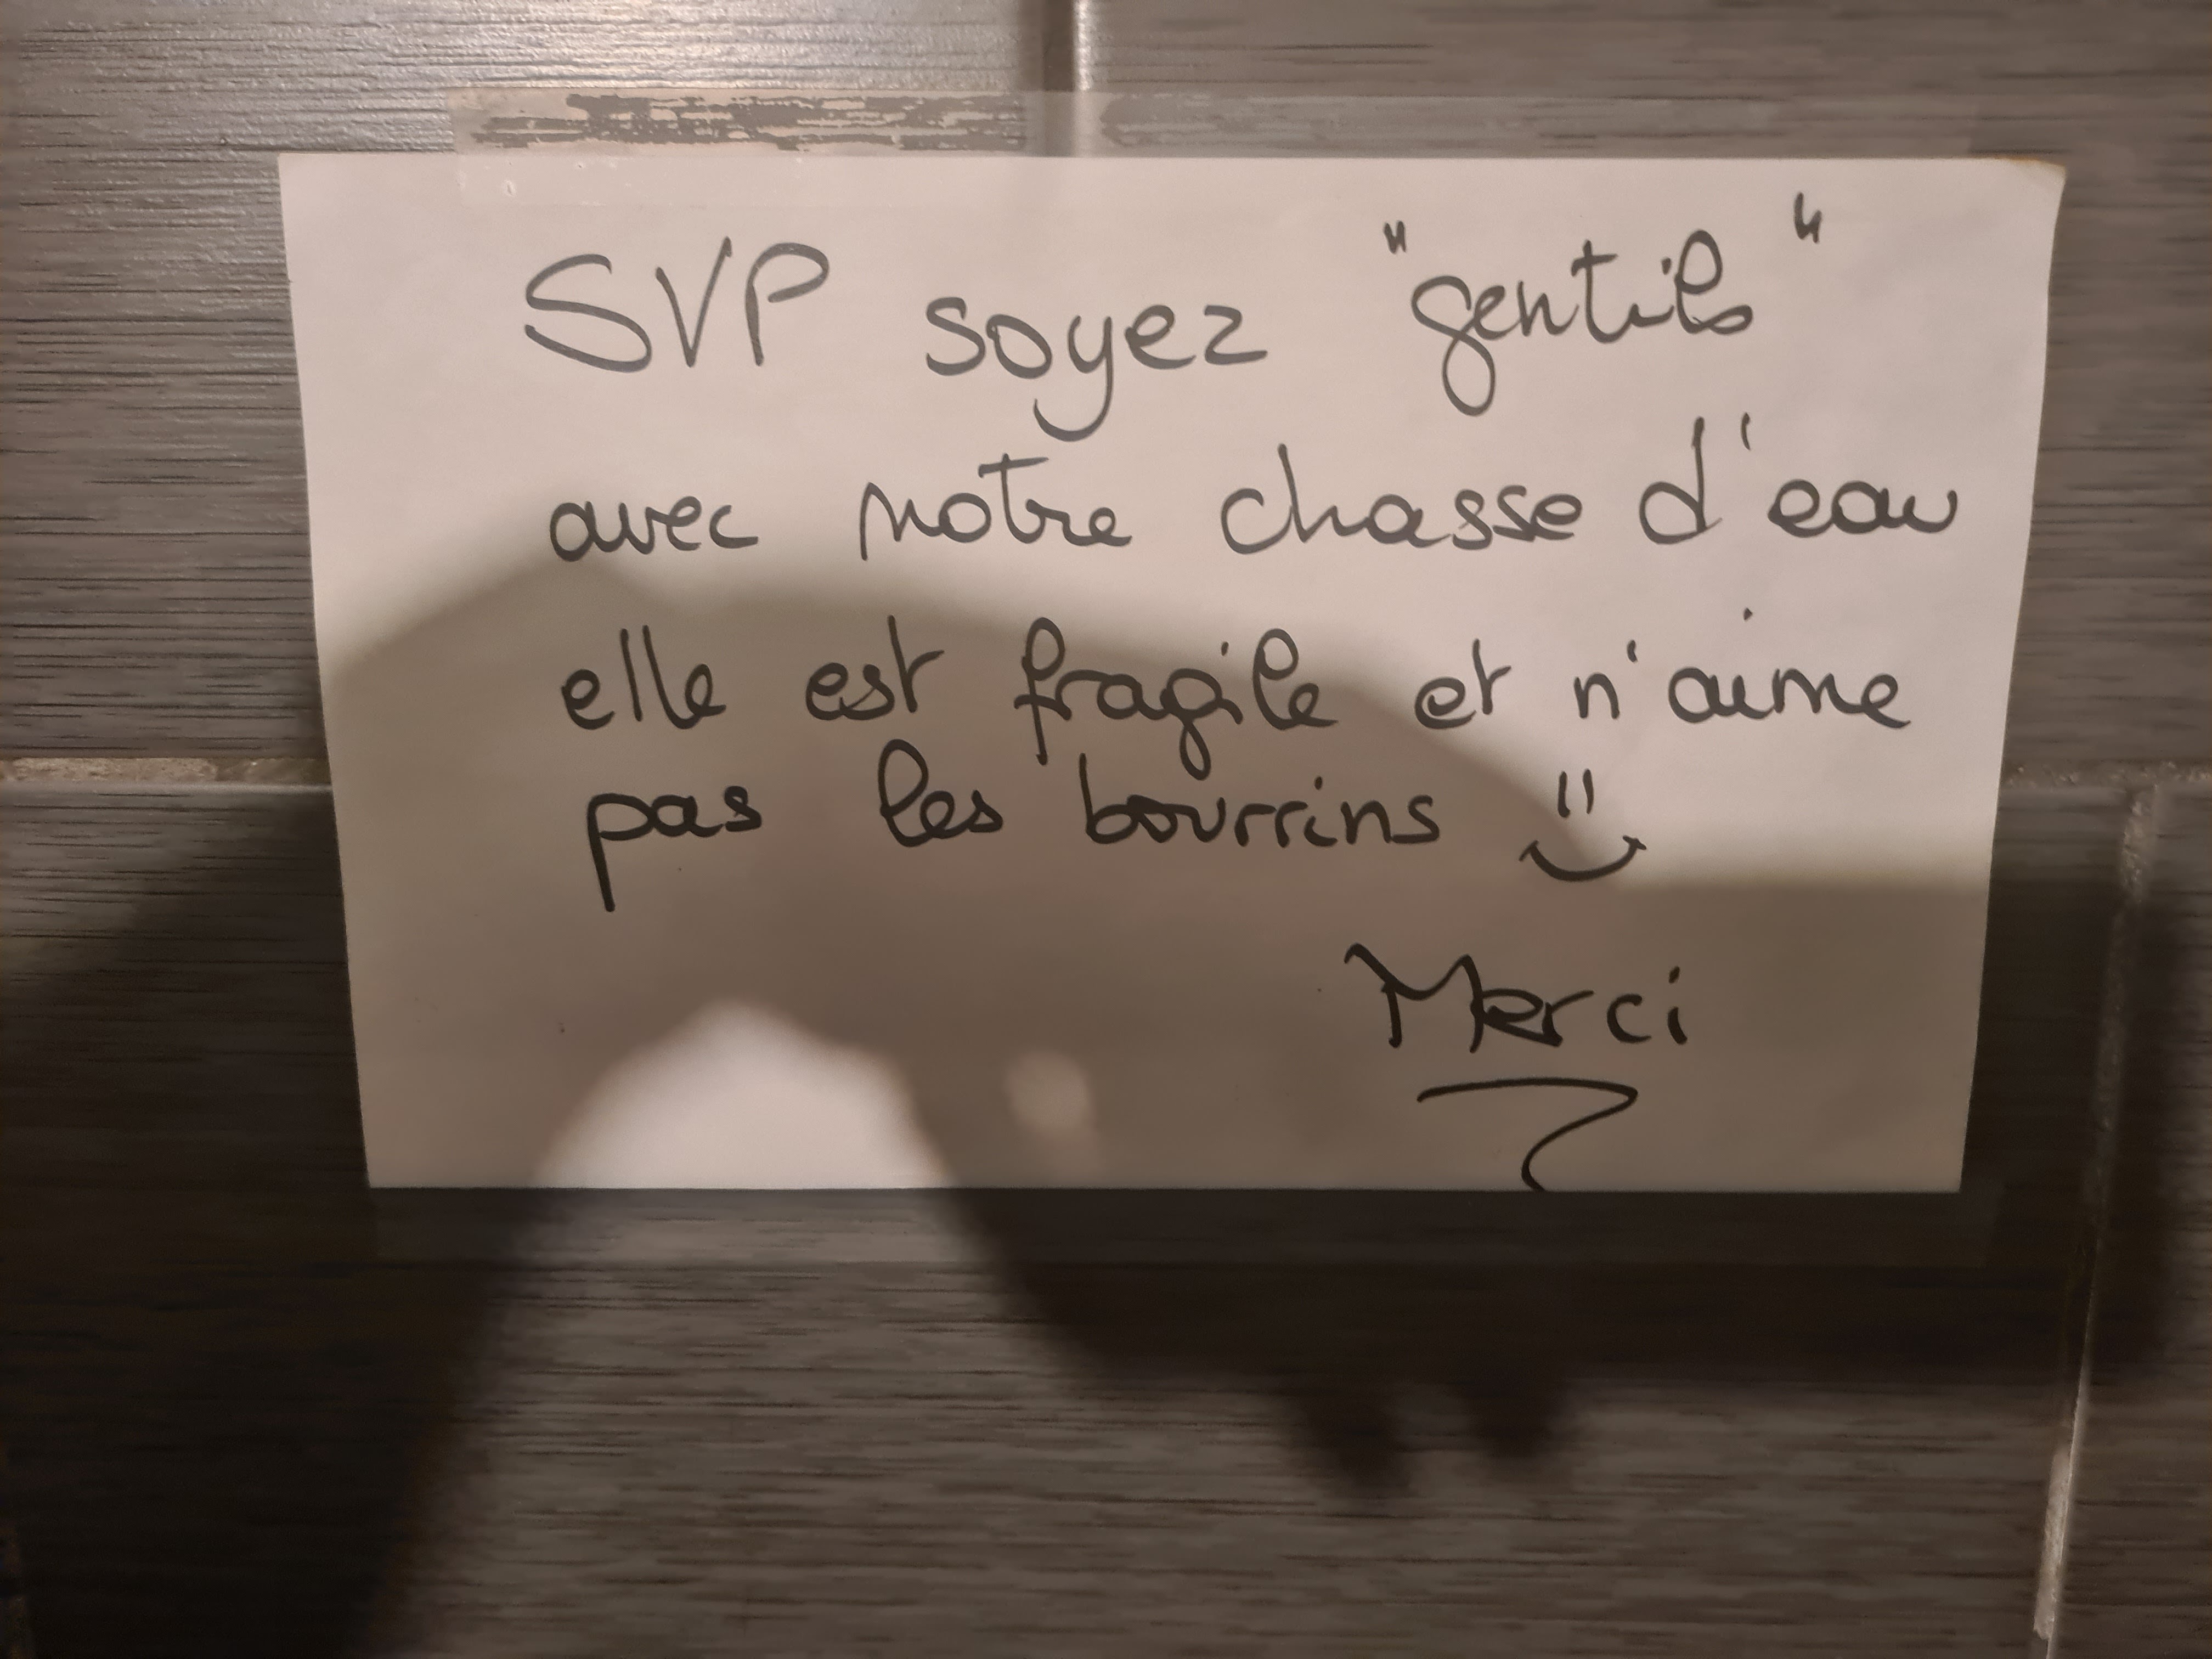 SVP soyez "gentils"
avec notre chasse d'eau
elle est fragile et n'aime
pas les bourrins
Merci